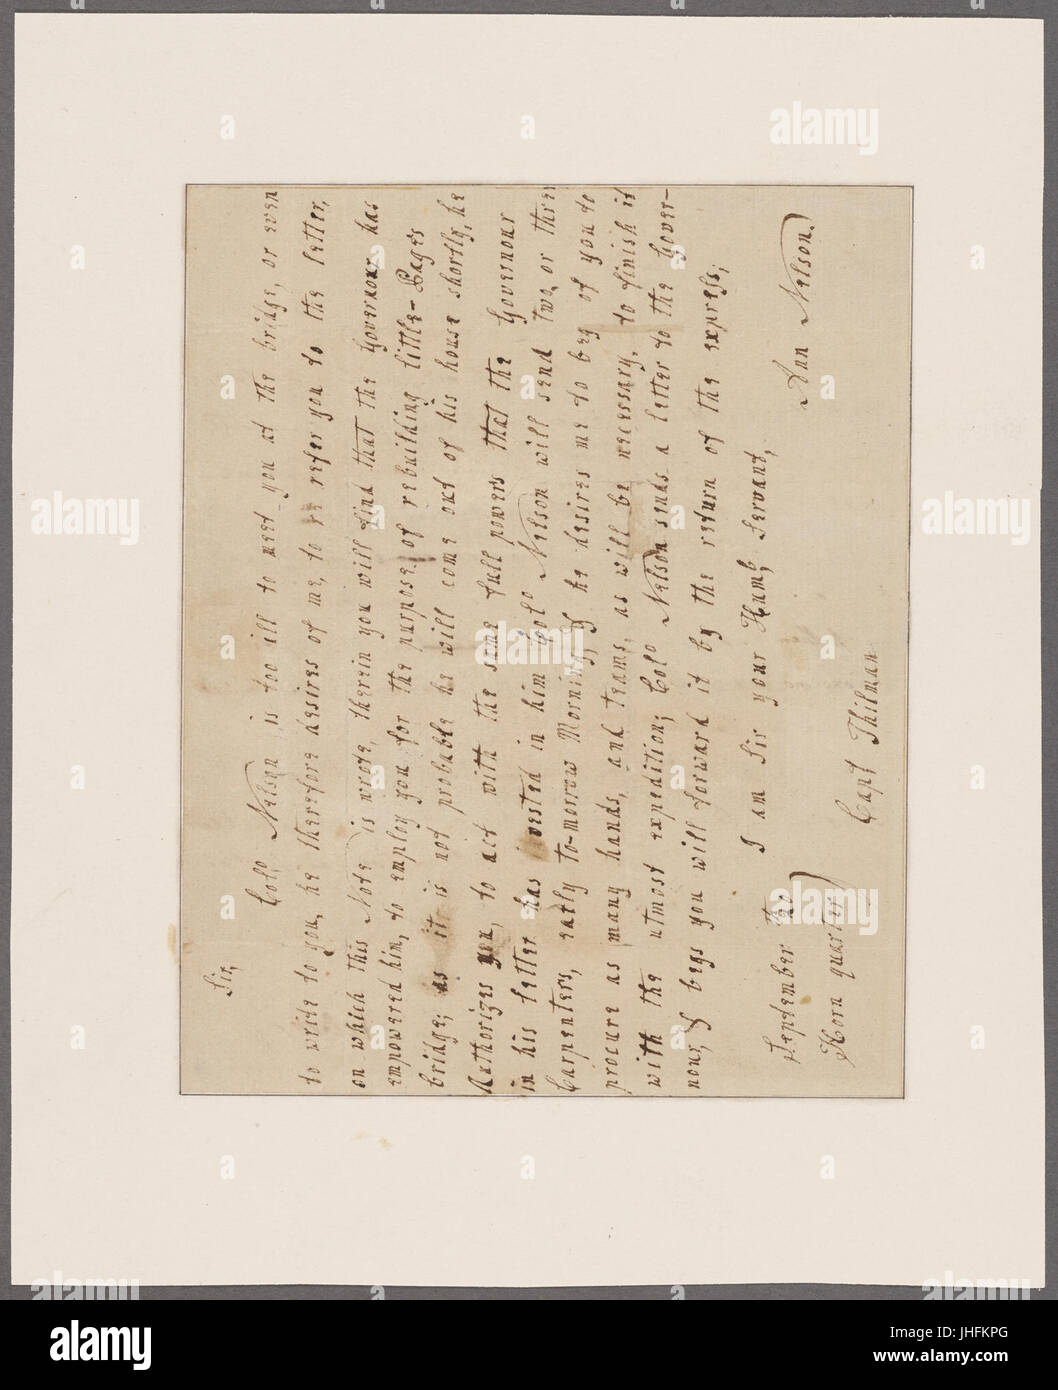 Sir,
Colo Nelson is too ill to meet you at the bridge, or even
to write to you, he therefore desires of me, to refer you to the letter,
on which this Note is wrote, therein you will find that the Governour has
empowered him, to employ you for the purpose of rebuilding little-Page's
bridge; as it is not probable he will come out of his house shortly, he
Authorizes you, to act with the same full powers that the Governour
in his letter has invested in him Colo Nelson will send Two, or three
Carpenters, early to-morrow Morning, & he desires me to beg of you to
procure as many hands, and teams, as will be necessary, to finish it
with the utmost expedition; Colo Nelson sends a letter to the Gover-
nour, & begs you will forward it by the return of the express;
I am Sir your Humb, Servant,
Ann Nelson.
September the
Horn quarter
Capt Thilman
alamy
a
alamy
Image ID: JHFKPG
www.alamy.com